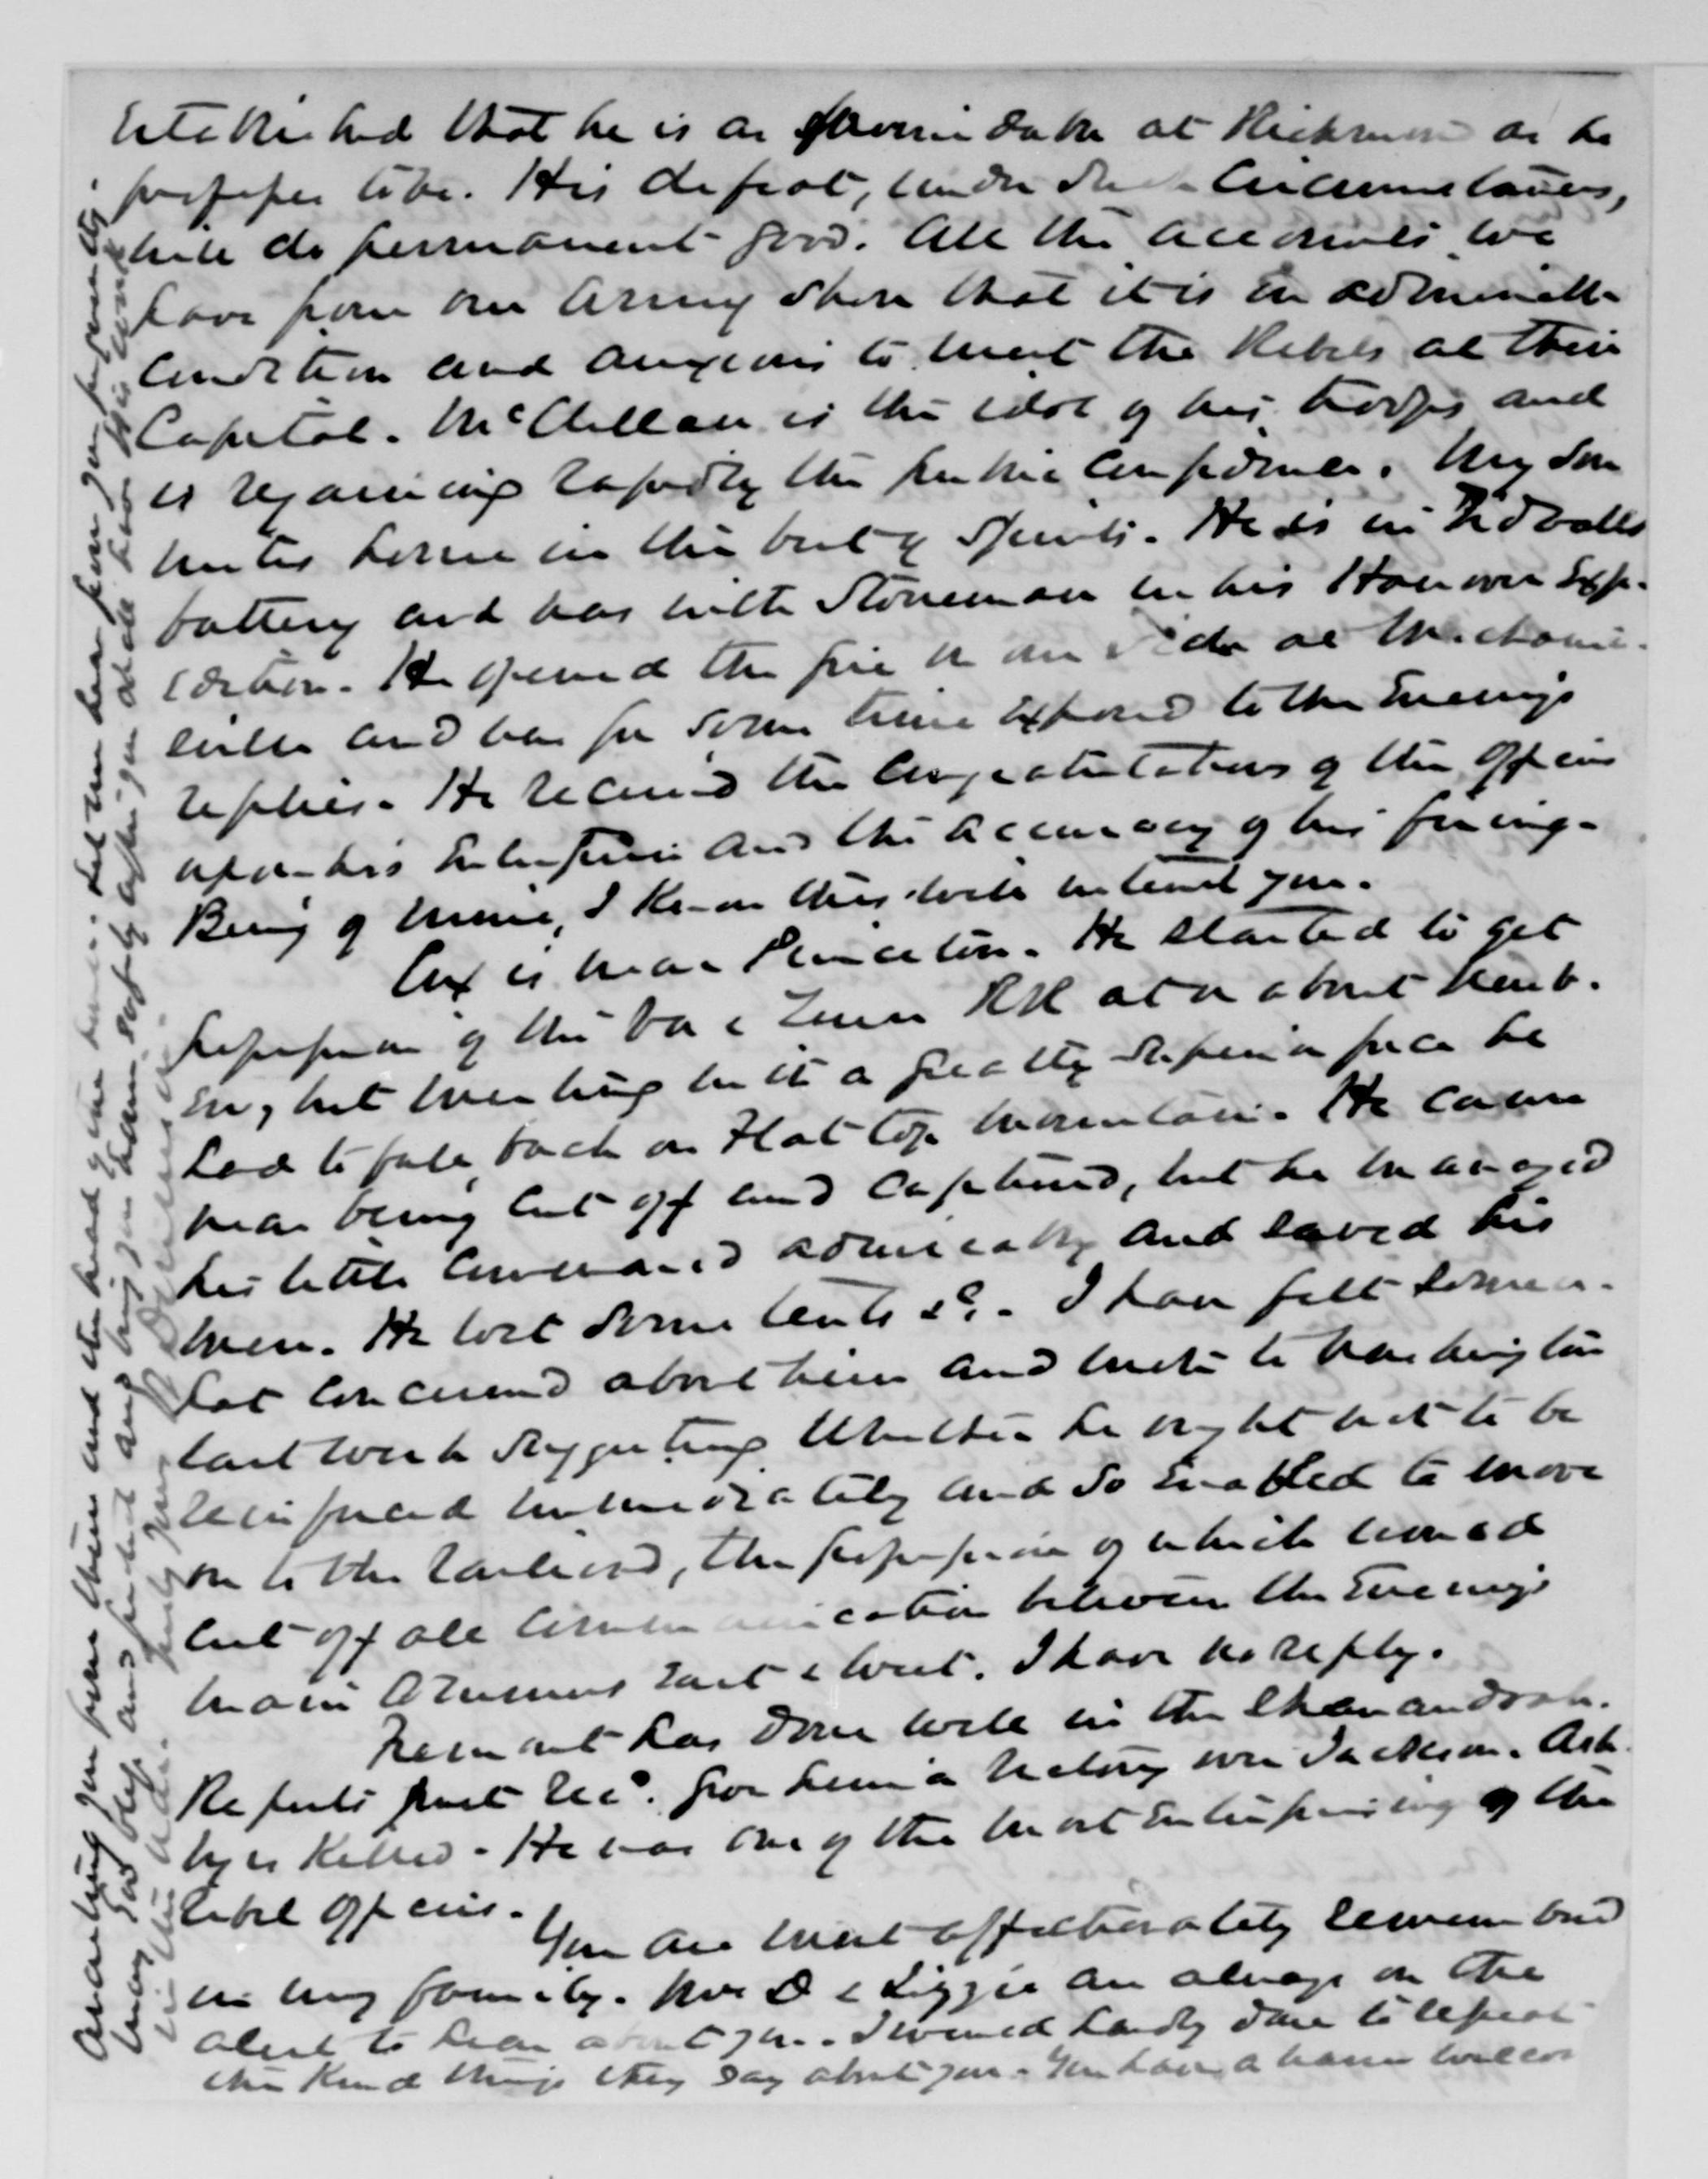 Established that he is as formidable at Richmond as he
possibly be. His defeat, under such circumstances,
will do permanent good. All the accounts we
have from our army show that it is in admirable
condition and anxious to meet the Rebels at their
Capitol. McClellan is the idol of his troops and
is regaining rapidly the public confidence. My son
writes home in the best of spirits. He is in Tidballs
battery and was with Stoneman in his Hanover Exp-
edition. He opened the fire on our side at Mechanic-
ville and was for some time exposed to the Enemys
replies. He received the congratulations of the officers
upon his Enterprise and the accuracy of his firing.
Being of mine, I know this will interest you.
Cox is near Princeton. He started to get
possession of the Va & Tenn RR at or about Newb-
ern, but meeting with a greatly superior force he
had to fall back on Flat top mountain. He came
near being cut off and captured, but he managed
his little command admirably and saved his
men. He lost some tents &c. I have felt somew-
hat concerned about him and wrote to Washington
last week suggesting whether he ought not to be
reinforced immediately and so enabled to move
on to the railroad, the possession of which would
cut off all communication between the Enemys
main armies East & West. I have no reply.
Fremont has done well in the Shenandoah.
Reports just recd. give him a victory over Jackson. Ash-
by is killed. He was one of the most enterprising of the
rebel officers.
You are most affectionately remembered
in my family. Mrs D & Liggie are always on the
alert to hear about you. I would hardly dare to repeat
the kind things they say about you. You have a warm welcome
awaiting you from them and the head of the house. Let me hear from you frequently.
may God bless and protect and bring you home safely after you shall have
in his